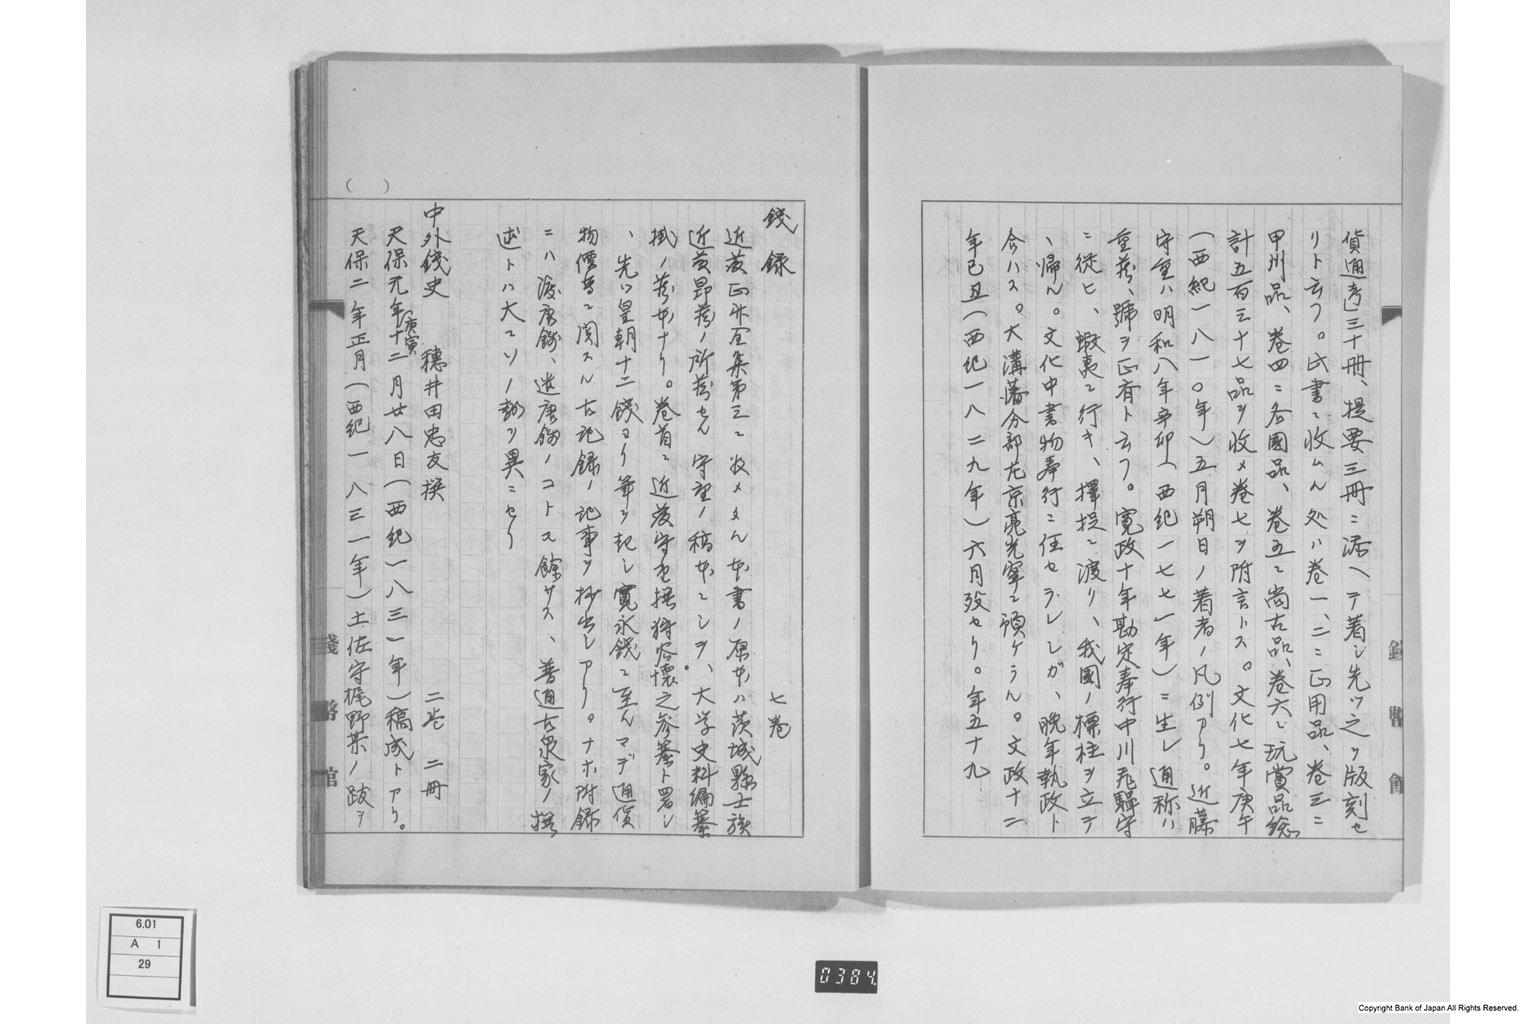 貨通考三十冊、提要三冊ニ添ヘテ著シ先ヅ之ヲ版刻セ
リト云フ。此書ニ收ムル処ハ卷一、二ニ正用品、卷三ニ
甲州品、卷四ニ各國品、卷五ニ尚古品、卷六ニ玩賞品総
計五百三十七品ヲ收メ卷七ヲ附言トス。文化七年庚午
(西紀一八一〇年)五月朔日ノ著者ノ凡例アリ。近藤
守重ハ明和八年辛卯(西紀一七七一年)ニ生レ通称ハ
重蔵、號ヲ正斉ト云フ。寛政十年勘定奉行中川飛驒守
ニ従ヒ、蝦夷ニ行キ、擇捉ニ渡リ、我國ノ標柱ヲ立テ
、帰ル。文化中書物奉行ニ任セラレシガ、晩年執政ト
合ハス。大溝藩分部左京亮光寧ニ預ケラル。文政十二
年己丑(西紀一八二九年)六月歿セリ。年五十九
錢録 七卷
近藤正斉全集第三ニ收メタル本書ノ原本ハ茨城縣士族
近藤昻蔵ノ所蔵セル守重ノ稿本ニシテ、大学史料編纂
掛ノ蔵本ナリ。卷首ニ近藤守重撰狩谷懷之参纂ト署シ
、先ツ皇朝十二錢ヨリ筆ヲ起シ寛永錢ニ至ルマデ通貨
物價等ニ関スル古記録ノ記事ヲ抄出シアリ。ナホ附録
ニハ渡唐錢、遣唐錢ノコトヲ餘サス、普通古泉家ノ撰
述トハ大ニソノ趣ヲ異ニセリ
中外錢史 穗井田忠友撰 二卷 二冊
天保元年(庚寅)十二月廿八日(西紀一八三一年)稿成トアリ。
天保二年正月(西紀一八三一年)土佐守梶野某ノ跋ヲ
( )
錢幣館
6.01
A 1
29
0384
Copyright Bank of Japan All Rights Reserved.